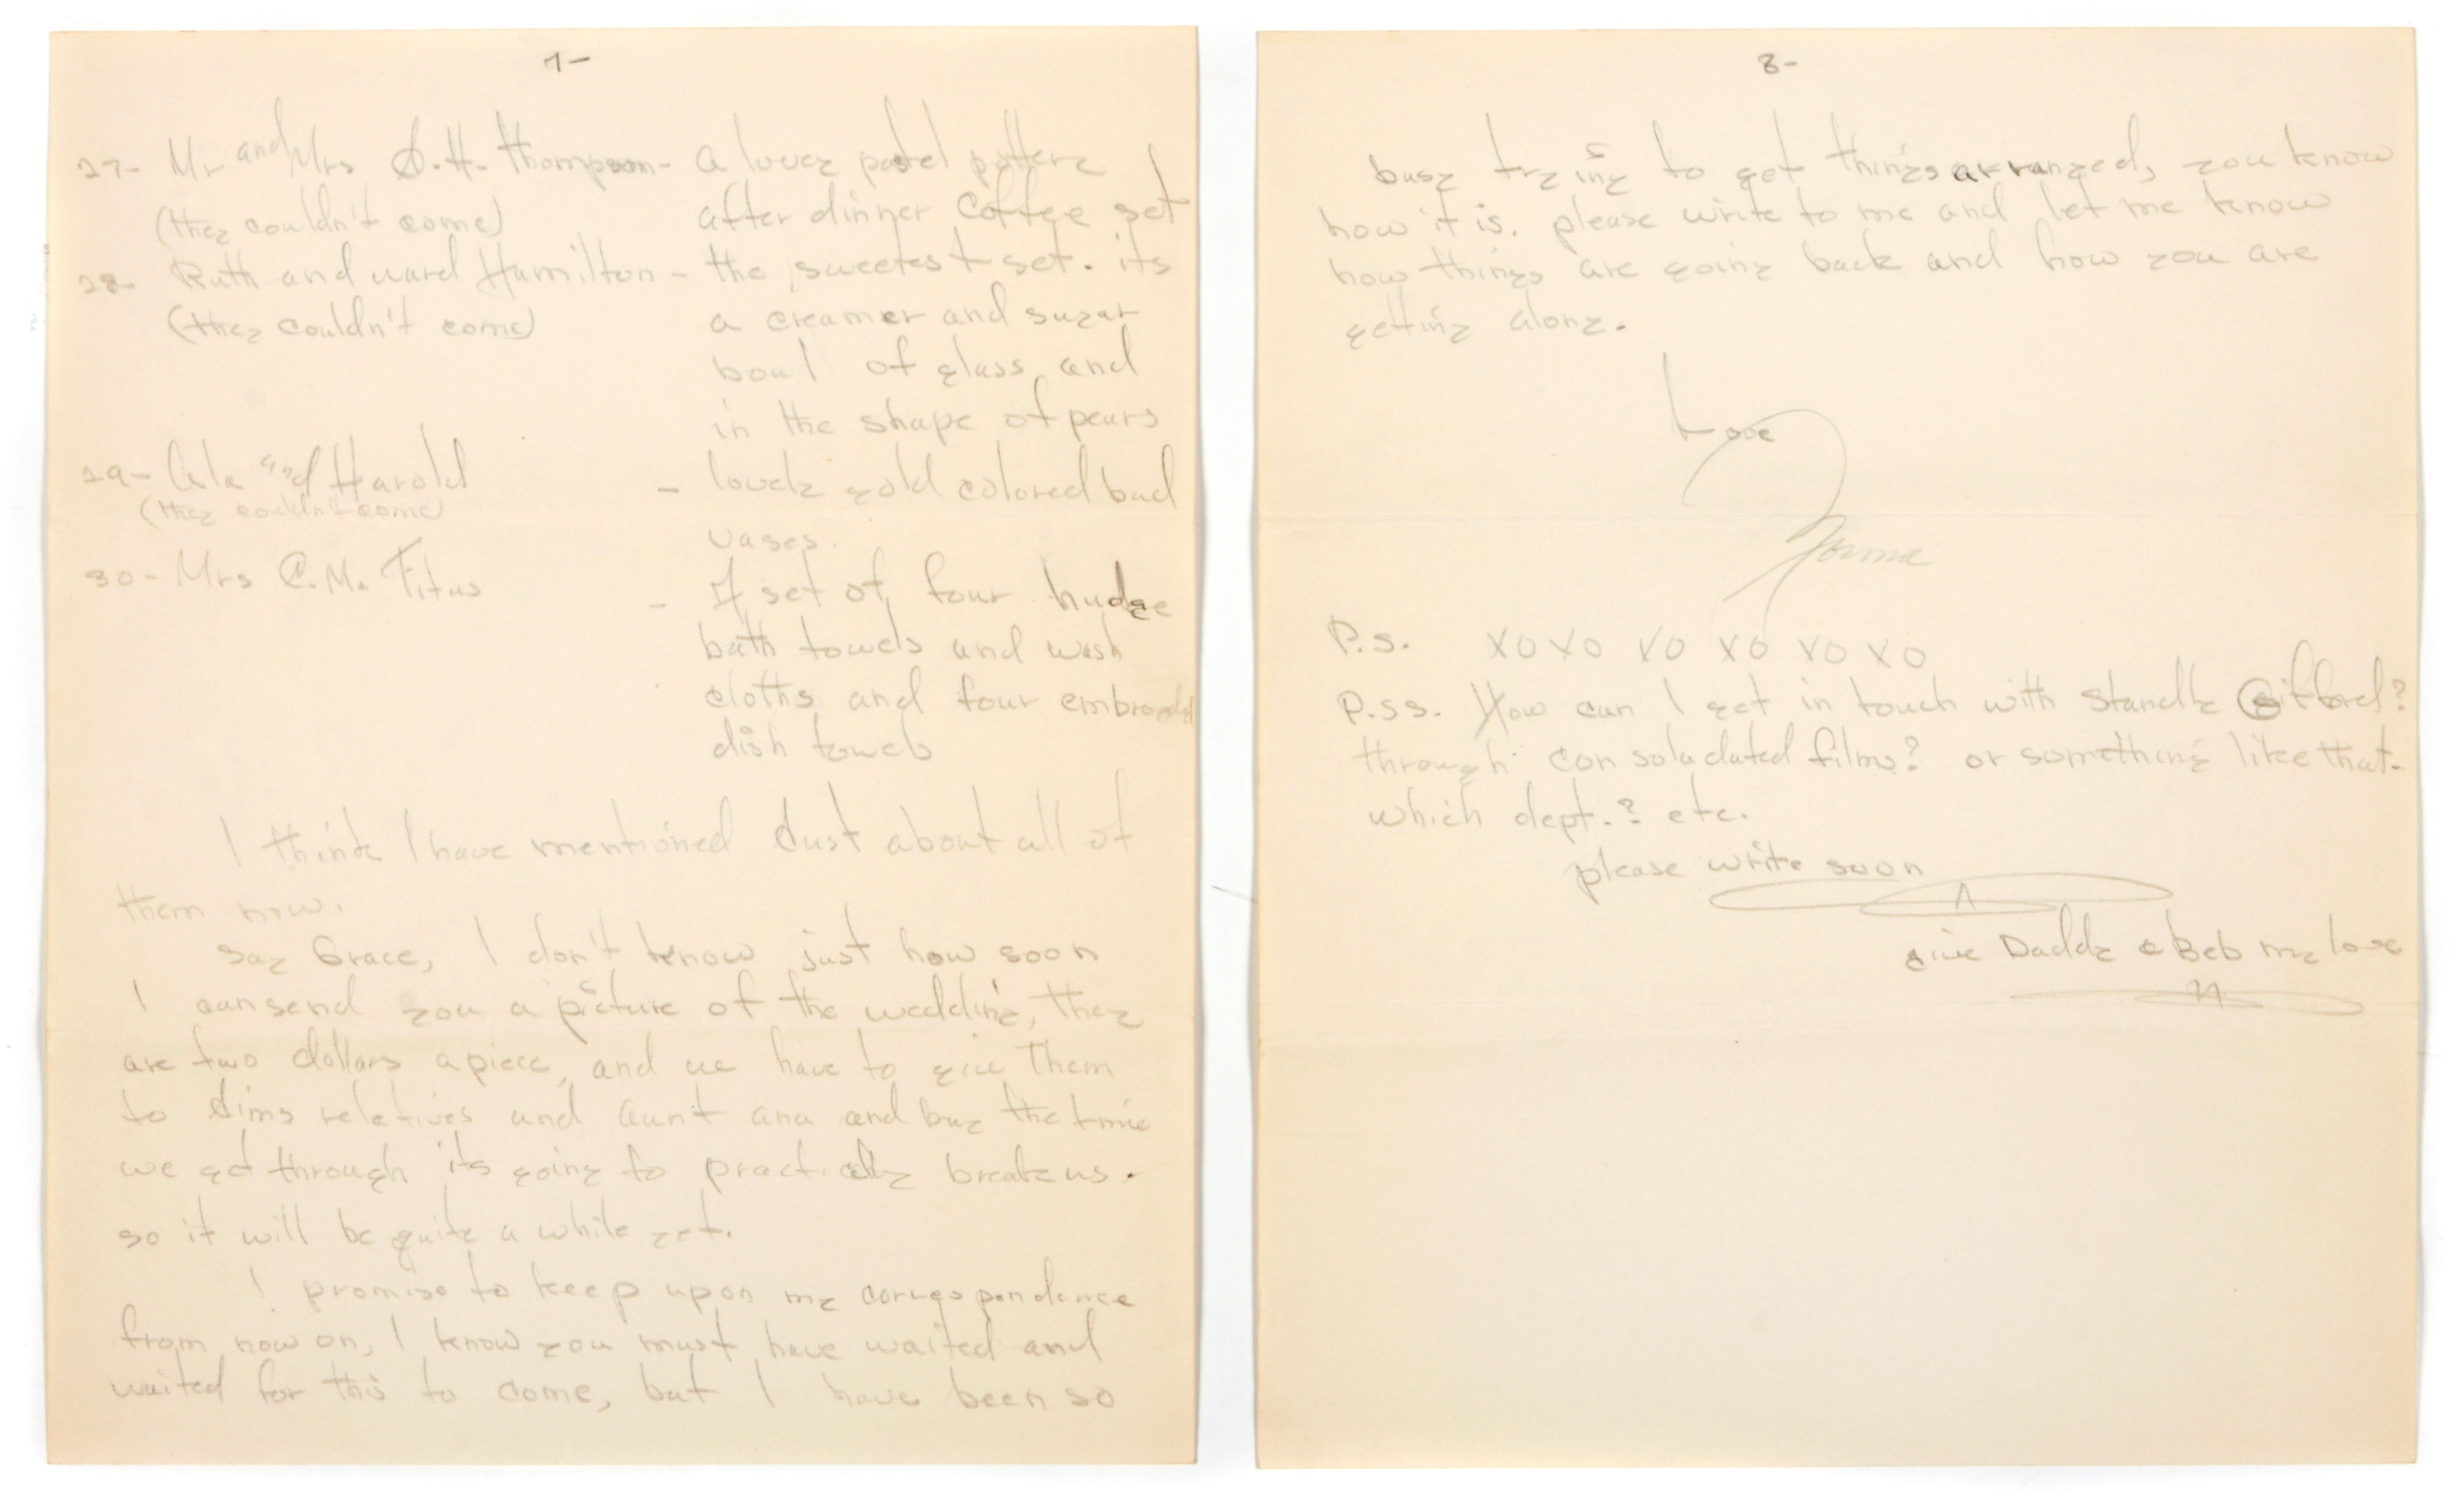 7-
27- Mr and Mrs S.H. Thompson - a lovey pastel pottery
(they couldn't come) after dinner coffee set
28- Ruth and ward Hamilton - the sweetest set. its
(they couldn't come) a creamer and sugar
boul of glass and
in the shape of pears
29- and Harold - lovely gold colored bud
(they couldn't come) vases.
30- Mrs C.M. Titus - A set of four hudge
bath towels and wash
cloths and four
dish towels
I think I have mentioned Just about all of
them now.
say Grace, I don't know just how soon
I can send you a picture of the wedding, they
are two dollars apiece, and we have to give them
to Jims reletives and Aunt ana and buy the time
we get through its going to practically break us.
so it will be quite a while yet.
I promise to keep upon my correspondence
from now on, I know you must have waited and
waited for this to come, but I have been so
8-
busy trying to get things arranged, you know
how it is. please write to me and let me know
how things are going back and how you are
getting along.
Love
Norma
P.s. XO XO XO XO XO XO
P.ss. How can I get in touch with Standly Gifford?
through consoladated films? or something like that.
which dept.? etc.
please write soon
give Daddy & Beb my love